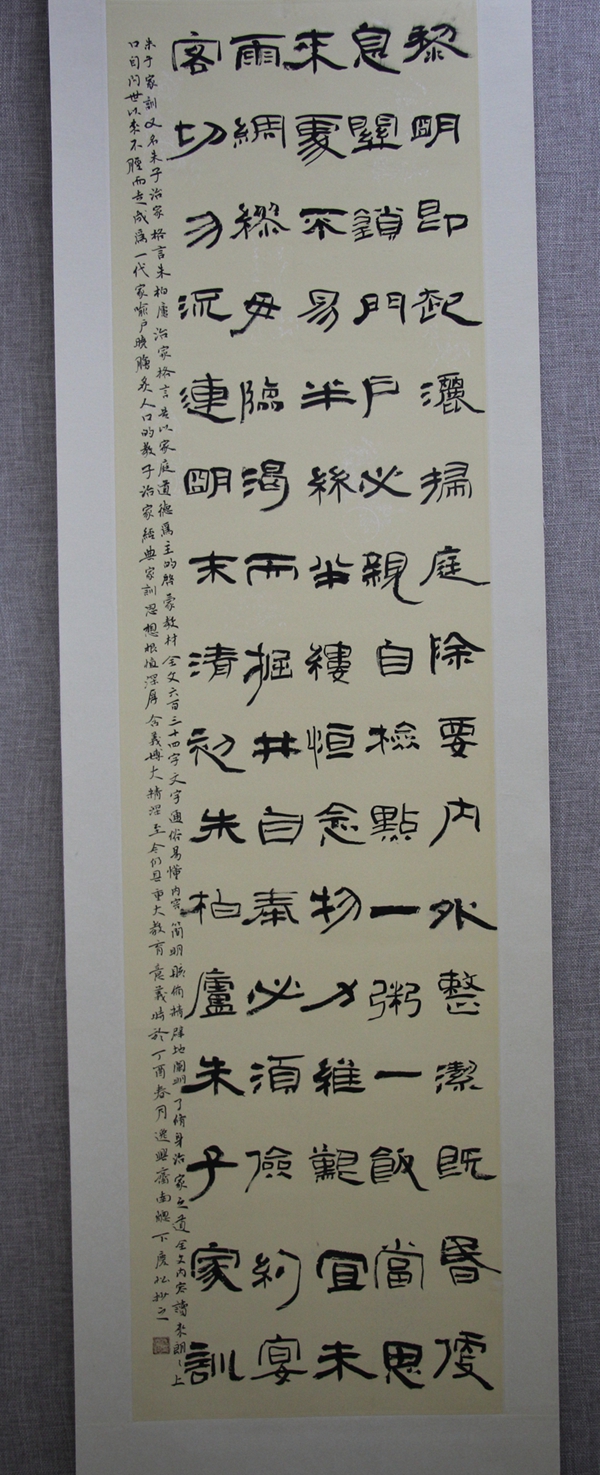 黎明即起灑掃庭除要內外整潔既昏便
息關鎖門戶必親自檢點一粥一飯當思
來處不易半絲半縷恒念物力維艱宜未
雨綢繆毋臨渴而掘井自奉必須儉約宴
客切勿流連明末清初朱柏廬朱子家訓
朱子家訓又名朱子治家格言朱柏廬治家格言是以家庭道德爲主的啓蒙教材全文六百三十四字文字通俗易懂內容簡明賅備精辟地闡明了修身治家之道全文內容讀來朗々上
口自问世以來不脛而走成爲一代家喻戶曉膾炙人口的教子治家經典家訓思想根植深厚含義博大精深至今仍具重大教育意義時於丁酉春月逸興齋南牕下